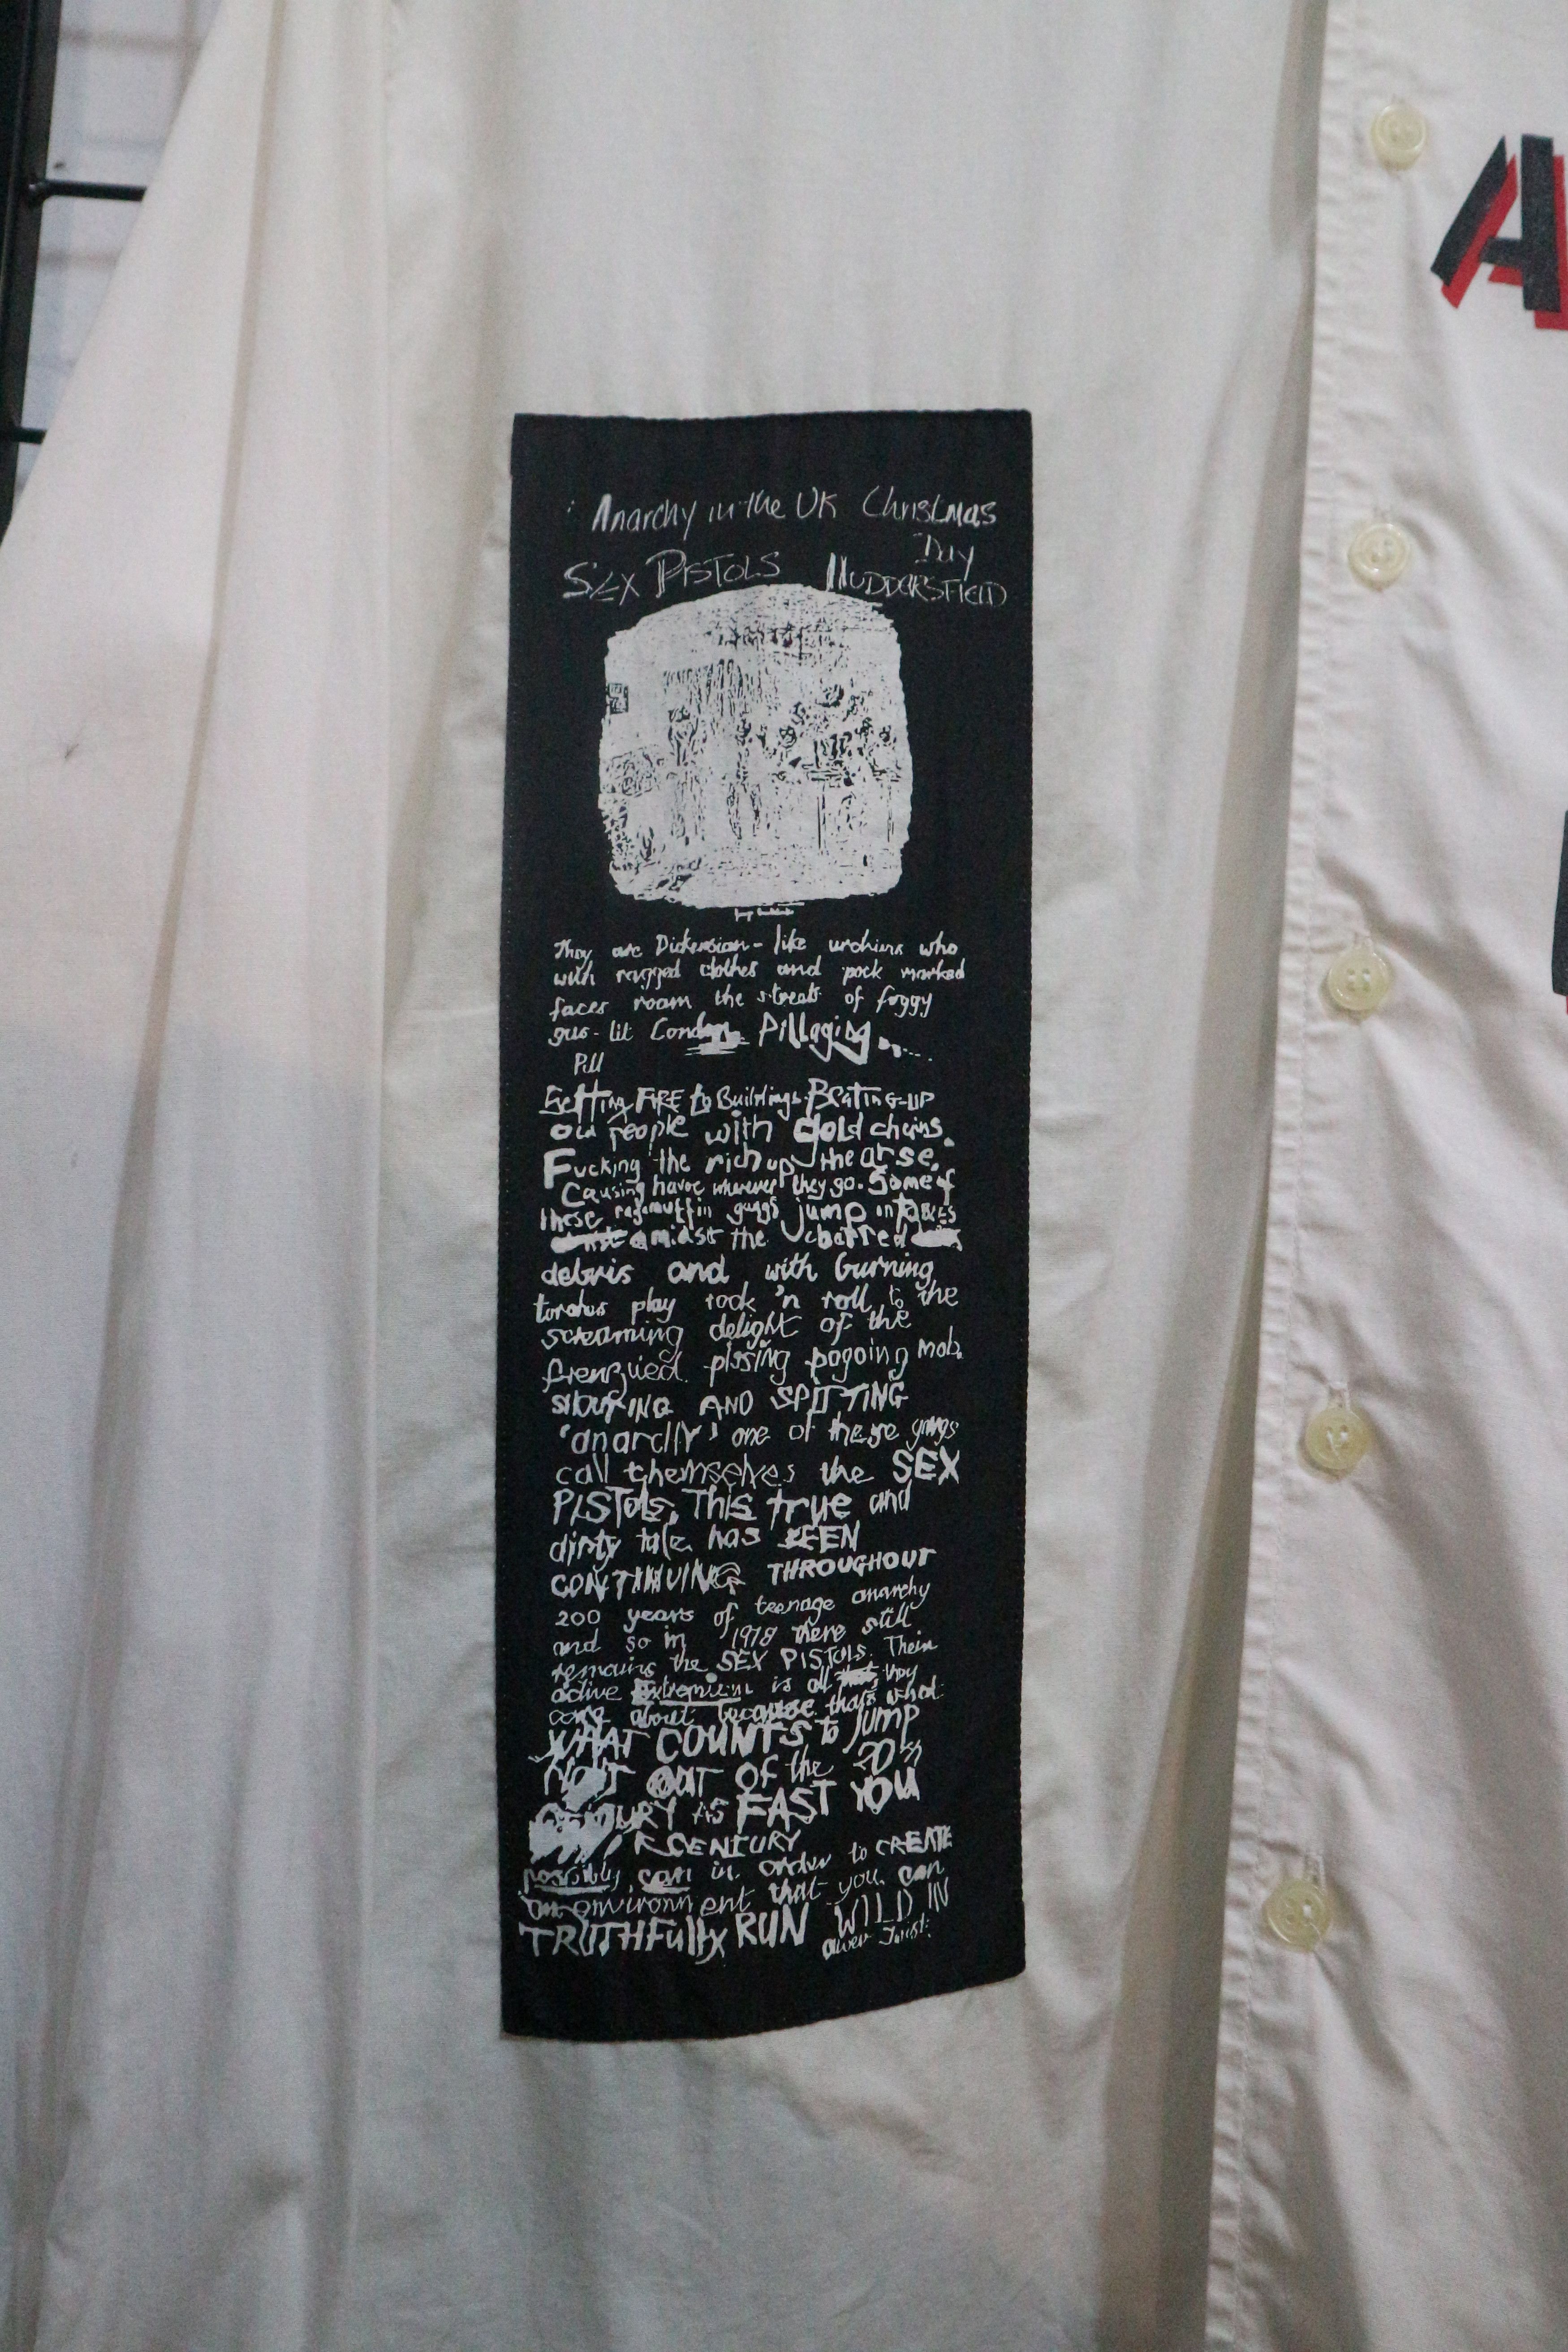 Anarchy in the UK Christmas
Day
SEX PISTOLS HUDDERSFIELD
They are Dickensian-like urchins who
with ragged clothes and pock marked
faces roam the streets of foggy
gas-lit London Pillaging.....
Pill
Setting FIRE to Buildings. BEATING-UP
old people with gold chains.
Fucking the rich up the arse.
Causing havoc wherever they go. Some of
these ragamuffin gangs jump on tables
amidst the charred
debris and with burning
torches play rock 'n roll to the
screaming delight of the
frenzied pissing pogoing mob.
SHOUTING AND SPITTING
'anarchy' one of these gangs
call themselves the SEX
PISTOLS. This true and
dirty tale has BEEN
CONTINUING THROUGHOUT
200 years of teenage anarchy
and so in 1978 there still
remains the SEX PISTOLS. Their
active Extremism is all they
care about because that's what
WHAT COUNTS to JUMP
OUT OF the 20th
CENTURY AS FAST YOU
CENTURY
possibly can in order to CREATE
an environment that you can
TRUTHFully RUN WILD IN
Oliver Twist.
A